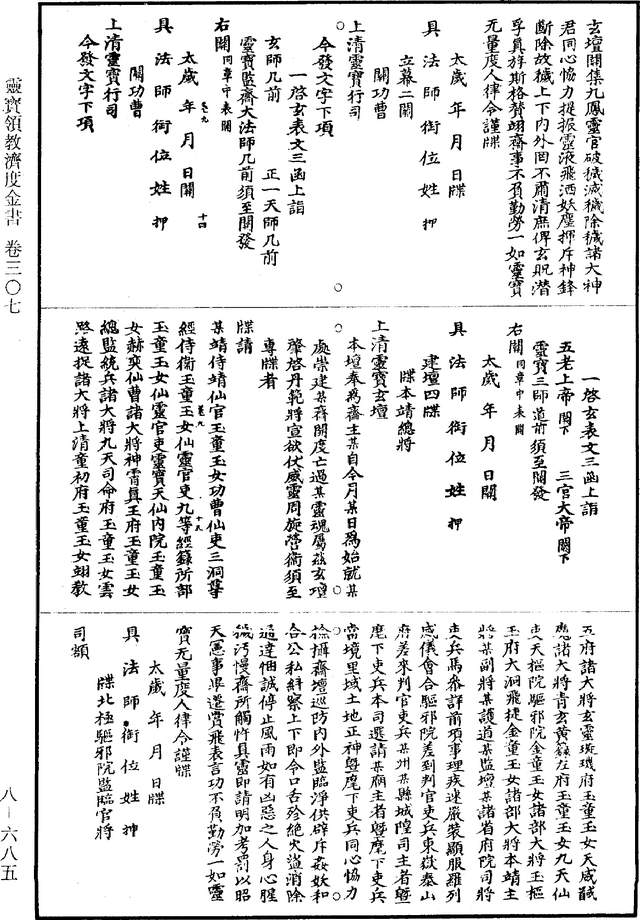 玄壇關集九鳳靈官破穢滅穢除穢諸大神
君同心恊力提振靈液飛洒妖塵押斥神鋒
斷除故穢上下內外罔不肅清庶俾玄貺潛
孚真馭斯格賛翊齋事不負勤勞一如靈寶
无量度人律令謹牒
太歲年月日牒
具法師銜位姓押
立幕二關
關功曹
上清靈寶行司
今發文字下項
一啓玄表文三函上詣
玄師几前　正一天師几前
靈寶監齋大法師几前須至關發
右關同章中表關
太歲年月日關
具法師銜位姓押
關功曹
上清靈寶行司
今發文字下項
一啓玄表文三函上詣
五老上帝闕下　三官大帝闕下
靈寶三師道前須至關發
右關同章中表關
太歲年月日關
具法師銜位姓押
建壇四牒
牒本靖總將
上清靈寶玄壇
本壇奉為齋主某自今月某日為始就某
處崇建某齋開度亡過某靈魂屬兹玄壇
肇啓丹範將宣欲仗威靈周旋營衛須至
專牒者
牒請
某靖侍靖仙官玉童玉女功曹仙吏三洞尊
經侍衛玉童玉女仙靈官吏九等經籙所部
玉童玉女仙靈官吏靈寶天仙內院玉童玉
女赫奕仙曹諸大將神霄真王府玉童玉女
總監統兵諸大將九天司命府玉童玉女雲
路遠捉諸大將上清童初府玉童玉女翊教
五府諸大將玄靈璇璣府玉童玉女天威誠
應諸大將青玄黃籙左府玉童玉女九天仙
吏天樞院驅邪院金童玉女諸部大將玉樞
玉府大洞飛捷金童玉女諸部大將本靖主
將某副將某護道某監壇某諸省府院司將
吏兵馬叅詳前項事理疾速嚴裝顯服羅列
威儀會合驅邪院差到判官吏兵東嶽泰山
府差來判官吏兵某州某縣城隍司主者暨
麾下吏兵本司選請某廟主者暨麾下吏兵
當境里域土地正神暨麾下吏兵同心恊力
捻攝齋壇巡防內外監臨淨供辟斥姦妖和
合公私糾察上下即令口舌殄絕火盜消除
通達悃誠停止風雨如有凶惡之人身心腥
穢污慢齋所觸忤真靈即請明加考罰以昭
天憲事畢遷賞飛表言功不負勤勞一如靈
寶无量度人律令謹牒
太歲年月日牒
具法師銜位姓押
牒北極驅邪院監臨官將
司額
靈寶領教濟度金書　卷三〇七
八－六八五